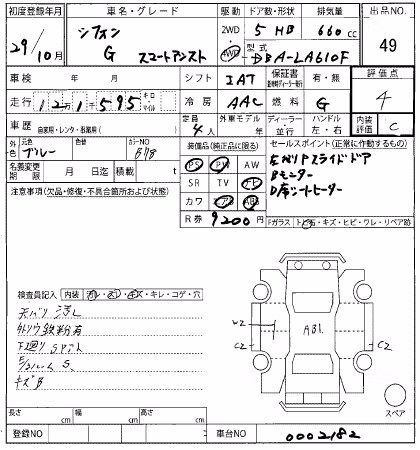 初度登録年月 車名・グレード 駆動 ドア数・形状 排気量 出品NO.
29/10月 シフォン G スマートアシスト 2WD 4WD 5 HB 660 cc 49
型式 DBA-LA610F
車検 年 月 シフト IAT 保証書 有・無 評価点
走行 121,595 キロ マイル 冷房 AAC 燃料 G 4
車歴 自家用・レンタ・事業用( ) 定員 4人 外車モデル 年 ディーラー 並行 ハンドル 左・右 内装評価 C
外色 元色 ブルー 色替 カラーNO B78 装備品(純正品に限る) セールスポイント(正常に作動するもの)
名義変更期限 月 日迄 積載 t PS PW AW 左側Pスライドドア
注意事項(欠品・修復・不具合箇所および状態) SR TV ナビ Bモニター
カワ エアB ABS D席シートヒーター
R券 9200円 Fガラス トビ石・キズ・ヒビ・ワレ・リペア跡
検査員記入 内装 汚レ・スレ・キズ・キレ・コゲ・穴
天バリ 汚レ
外ドウ 鉄粉有
下廻り サビ
キズB
W2 AB1. C2 C2
スペア
長さ cm 幅 cm 高さ cm
登録NO 車台NO 0002182